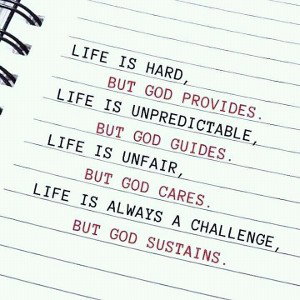 LIFE IS HARD,
BUT GOD PROVIDES.
LIFE IS UNPREDICTABLE,
BUT GOD GUIDES.
LIFE IS UNFAIR,
BUT GOD CARES.
LIFE IS ALWAYS A CHALLENGE,
BUT GOD SUSTAINS.